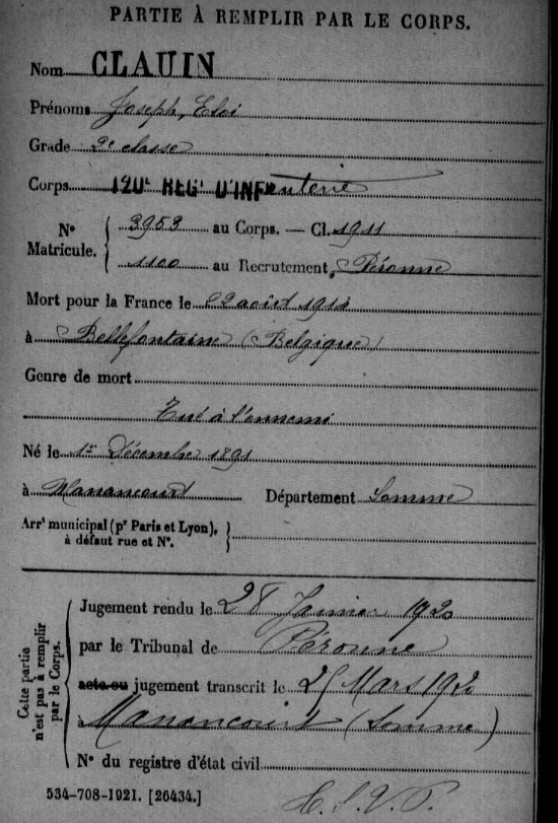 PARTIE À REMPLIR PAR LE CORPS.
Nom CLAUIN
Prénoms Joseph, Eloi
Grade 2e classe
Corps 120E REGt D'INFanterie
N° Matricule. 3953 au Corps. — Cl. 1911
1100 au Recrutement Péronne
Mort pour la France le 22 août 1914
à Bellefontaine (Belgique)
Genre de mort
Tué à l'ennemi
Né le 1er Décembre 1891
à Manancourt Département Somme
Arrt municipal (pr Paris et Lyon),
à défaut rue et N°.
Cette partie
n'est pas à remplir
par le Corps.
Jugement rendu le 28 Janvier 1920
par le Tribunal de Péronne
acte ou jugement transcrit le 25 Mars 1920
à Manancourt (Somme)
N° du registre d'état civil
534-708-1921. [26434.]